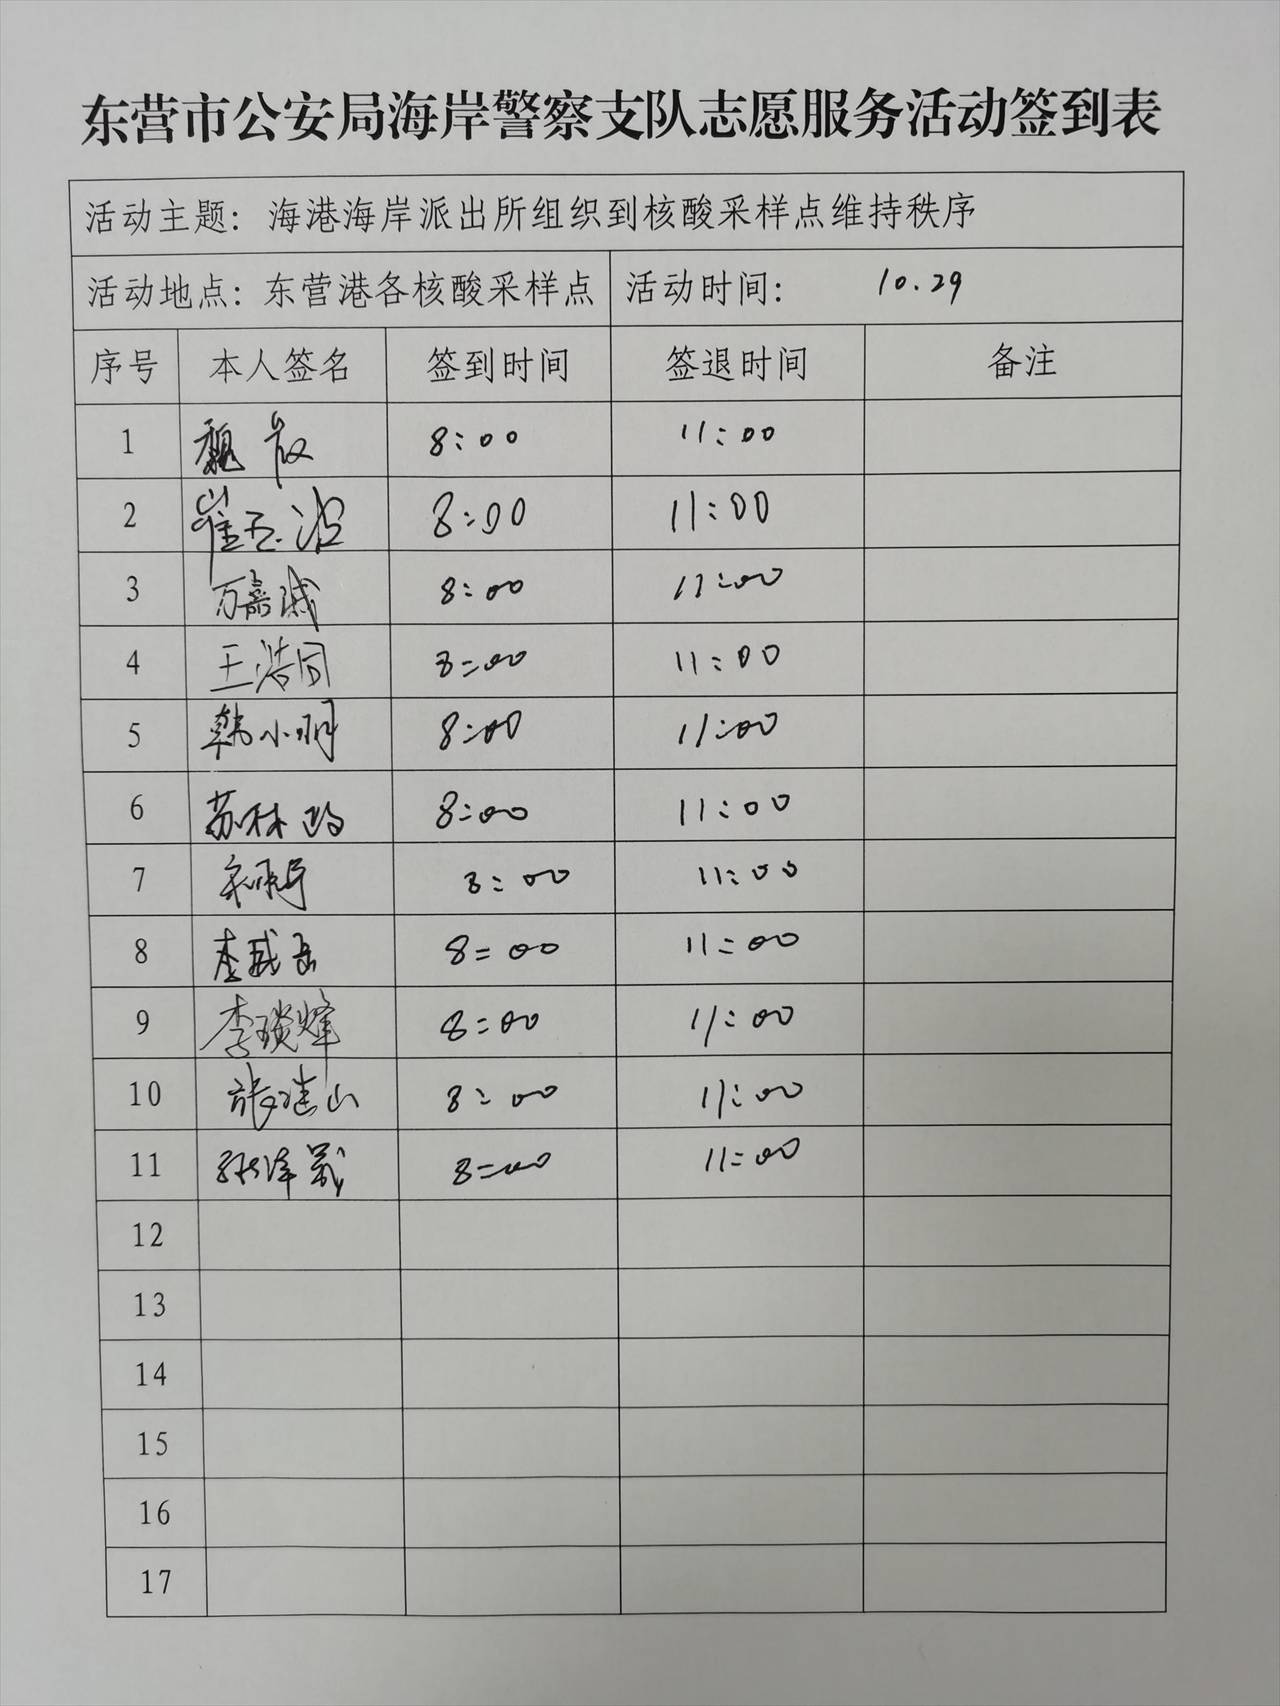 东营市公安局海岸警察支队志愿服务活动签到表
活动主题：海港海岸派出所组织到核酸采样点维持秩序
活动地点：东营港各核酸采样点 活动时间： 10.29
序号 本人签名 签到时间 签退时间 备注
1 魏 8:00 11:00
2 崔玉波 8:00 11:00
3 万嘉诚 8:00 11:00
4 王浩同 8:00 11:00
5 韩小明 8:00 11:00
6 苏林 8:00 11:00
7 8:00 11:00
8 李 岳 8:00 11:00
9 李琰烽 8:00 11:00
10 张建山 8:00 11:00
11 张泽 8:00 11:00
12
13
14
15
16
17